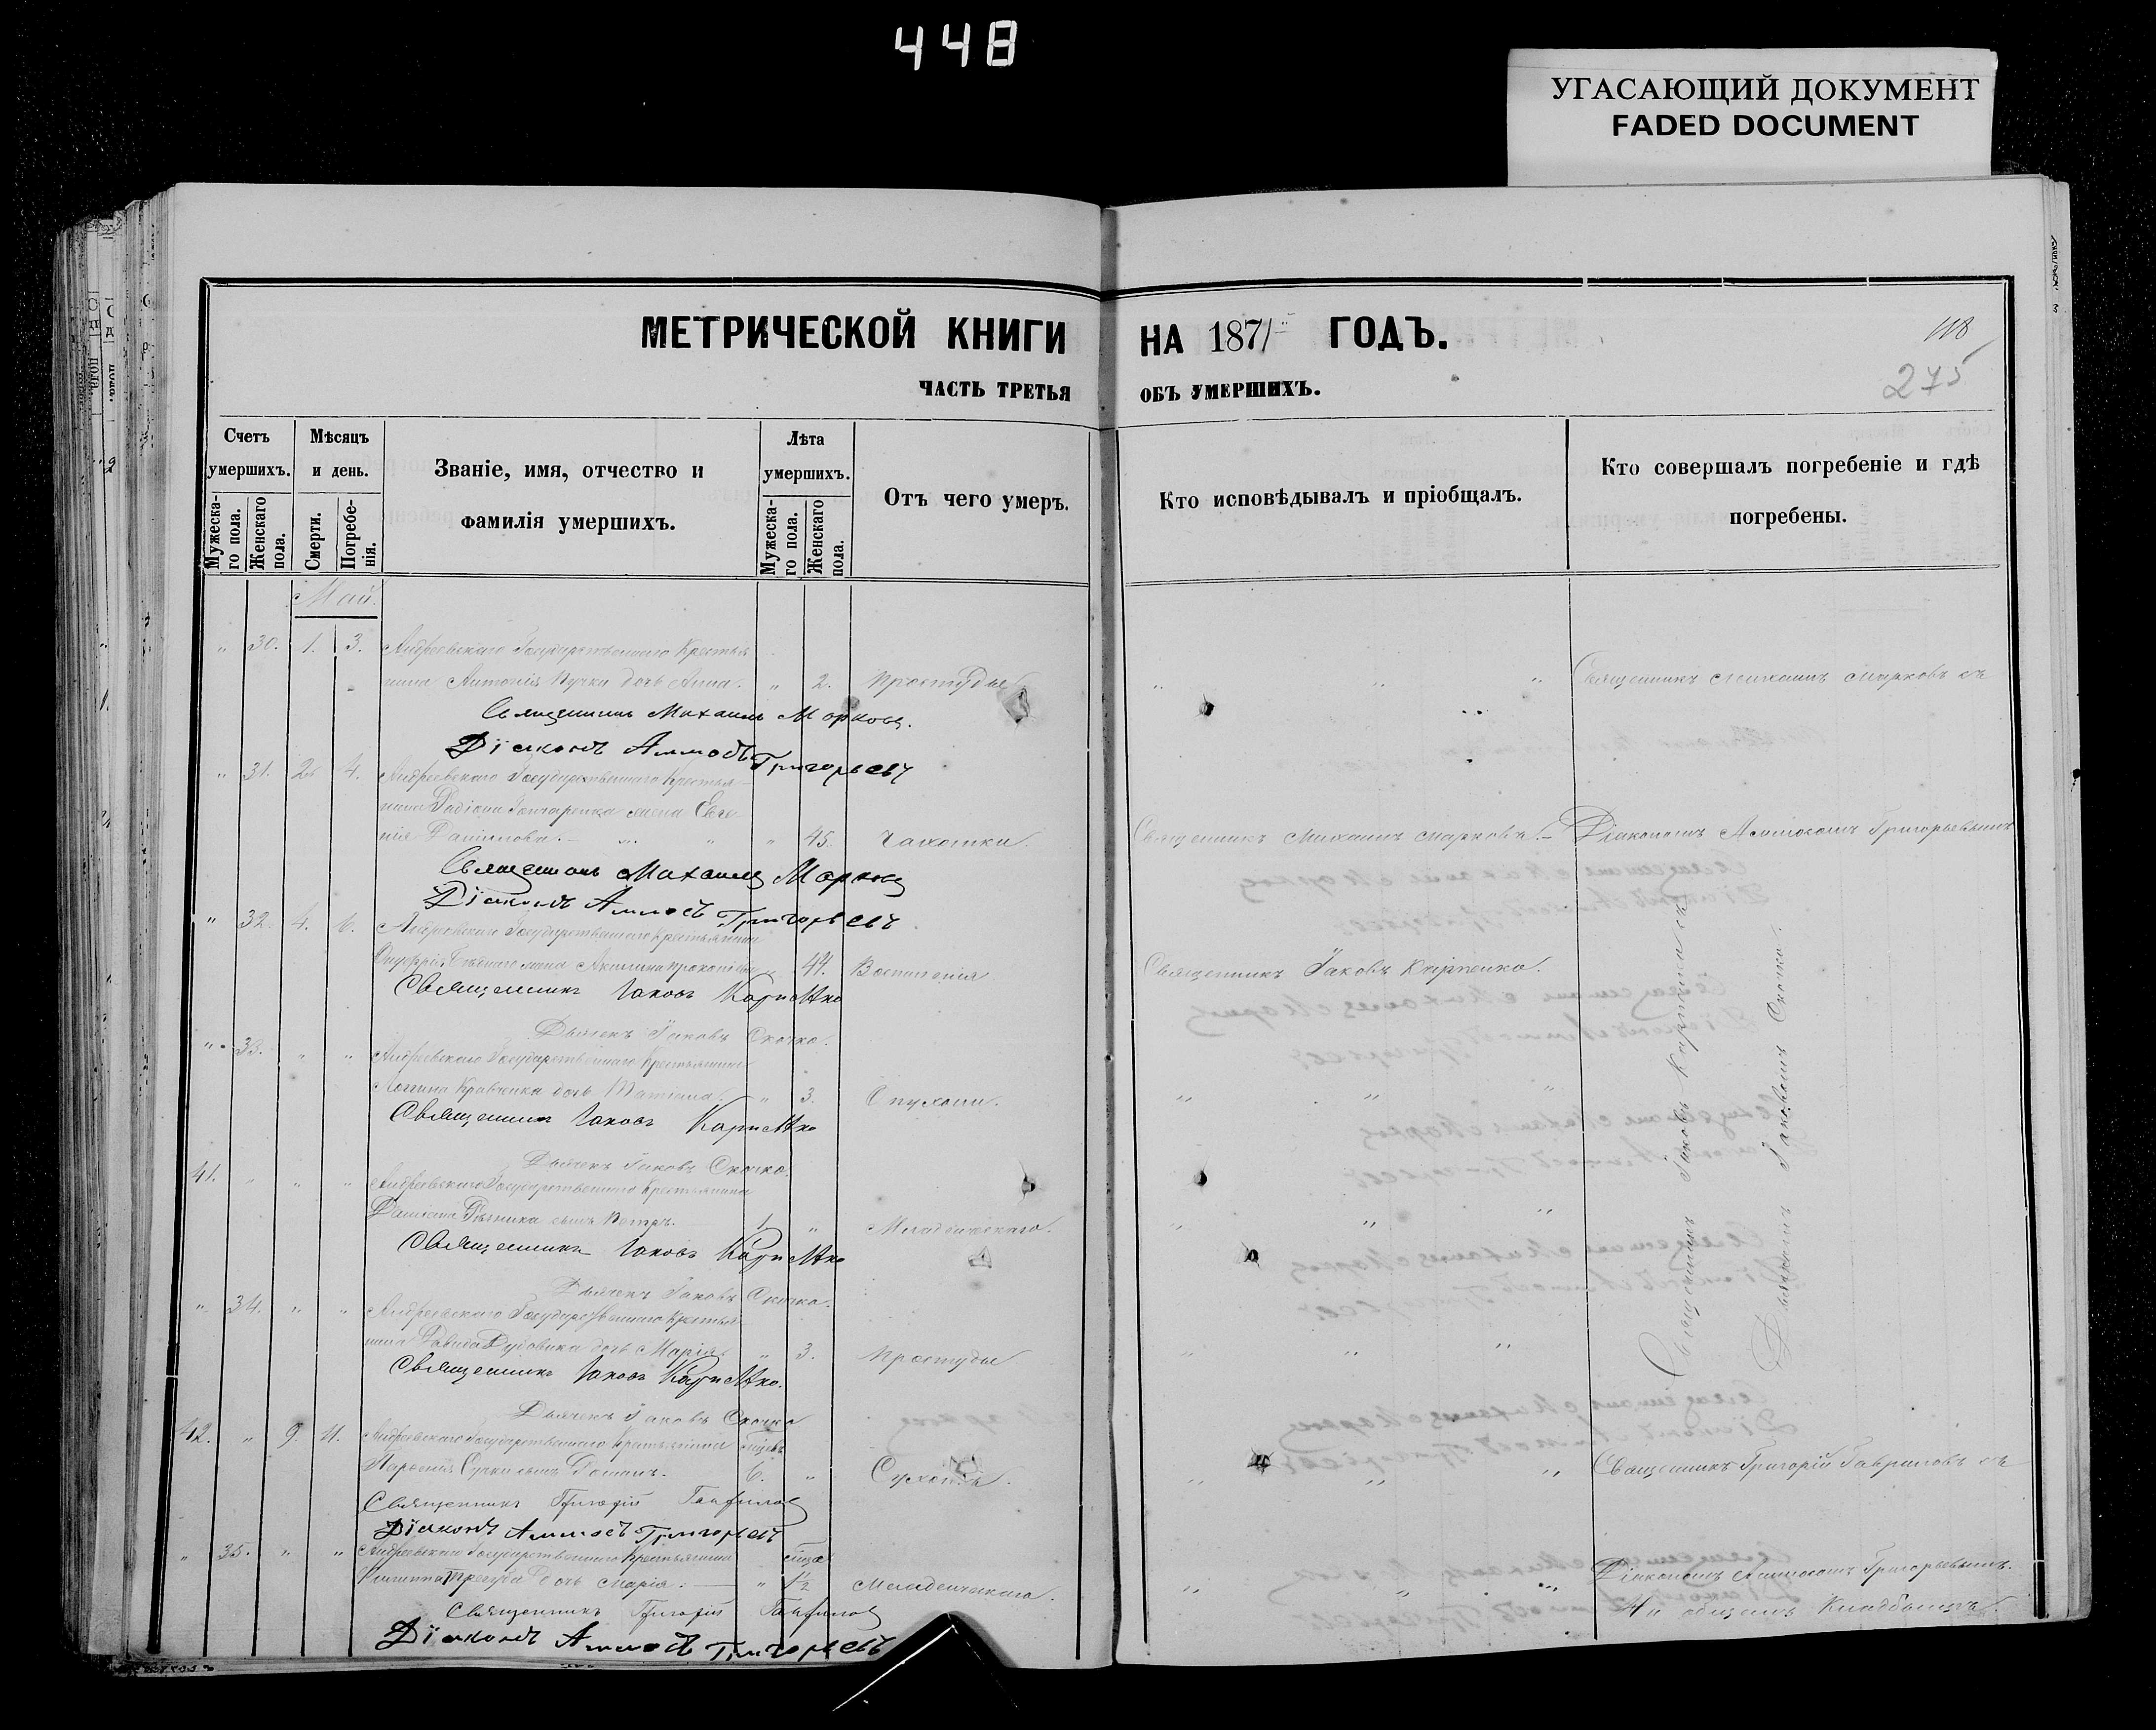 448
УГАСАЮЩИЙ ДОКУМЕНТ
FADED DOCUMENT
МЕТРИЧЕСКОЙ КНИГИ НА 1871 ГОДЪ.
118
275
ЧАСТЬ ТРЕТЬЯ ОБЪ УМЕРШИХЪ.
Счетъ умершихъ.
Мужеска-го пола.
Женскаго пола.
Мѣсяцъ и день.
Смерти.
Погребе-нія.
Званіе, имя, отчество и
фамилія умершихъ.
Лѣта умершихъ.
Мужеска-го пола.
Женскаго пола.
Отъ чего умеръ.
Кто исповѣдывалъ и пріобщалъ.
Кто совершалъ погребеніе и гдѣ
погребены.
Май.
" 30. 1. 3. Андреевскаго Государственнаго Крестья
нина Антонія Пучки дочь Анна. " 2. Простуды " " " Священникъ Михаилъ Марковъ съ
Священникъ Михаилъ Марковъ.
Діаконъ Аммосъ Григорьевъ
" 31. 2. 4. Андреевскаго Государственнаго Крестья
нина Гончаренка жена Евге
нія Данилова. " 45. Чахотки. Священникъ Михаилъ Марковъ. Діакономъ Аммосомъ Григорьевымъ
Священникъ Михаилъ Марковъ
Діаконъ Аммосъ Григорьевъ
" 32. 4. 6. Андреевскаго Государственнаго Крестьянина
Онуфрія жена Акилина Прокопіева 44. Воспаленія Священникъ Іаковъ Карпенко.
Священникъ Іаковъ Карпенко
Дьячекъ Іаковъ Скочко.
" 33. " " Андреевскаго Государственнаго Крестьянина
Логгина Кравченка дочь Татіана. " 3. Опухоли. " " "
Священникъ Іаковъ Карпенко
Дьячекъ Іаковъ Скочко.
41. " " " Андреевскаго Государственнаго Крестьянина
Даміана сынъ Петръ. 1. " Младенческаго. " " "
Священникъ Іаковъ Карпенко
Дьячекъ Іаковъ Скочко.
" 34. " " Андреевскаго Государственнаго Крестья
нина Давида дочь Марія. " 3. Простуды " " "
Священникъ Іаковъ Карпенко.
Дьячекъ Іаковъ Скочко
Священникъ Іаковъ Карпенко съ
Дьячкомъ Іаковомъ Скочко.
42. " 9. 11. Андреевскаго Государственнаго Крестьянина
сынъ Романъ. 6. " Сухотъ. " " " Священникъ Григорій Гавриловъ съ
Священникъ Григорій Гавриловъ
Діаконъ Аммосъ Григорьевъ
" 35. " " Андреевскаго Государственнаго Крестьянина
дочь Марія. " 1½ Младенческаго. " " " Діакономъ Аммосомъ Григорьевымъ.
Священникъ Григорій Гавриловъ На общемъ Кладбищѣ.
Діаконъ Аммосъ Григорьевъ